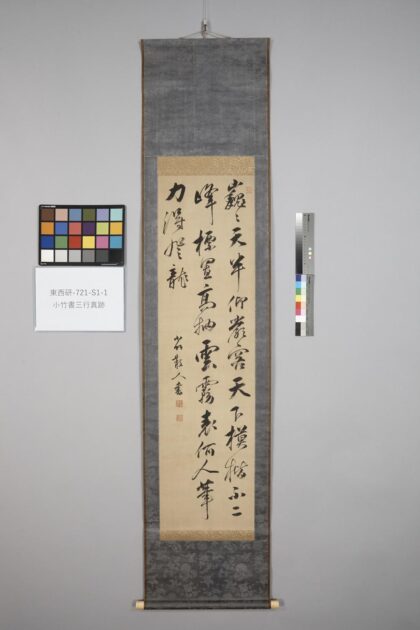 巍々天半仰嚴容天下模楷不二
峰標置高抽雲霧表何人筆
力得龍
小竹散人書
東西研-721-S1-1
小竹書三行真跡